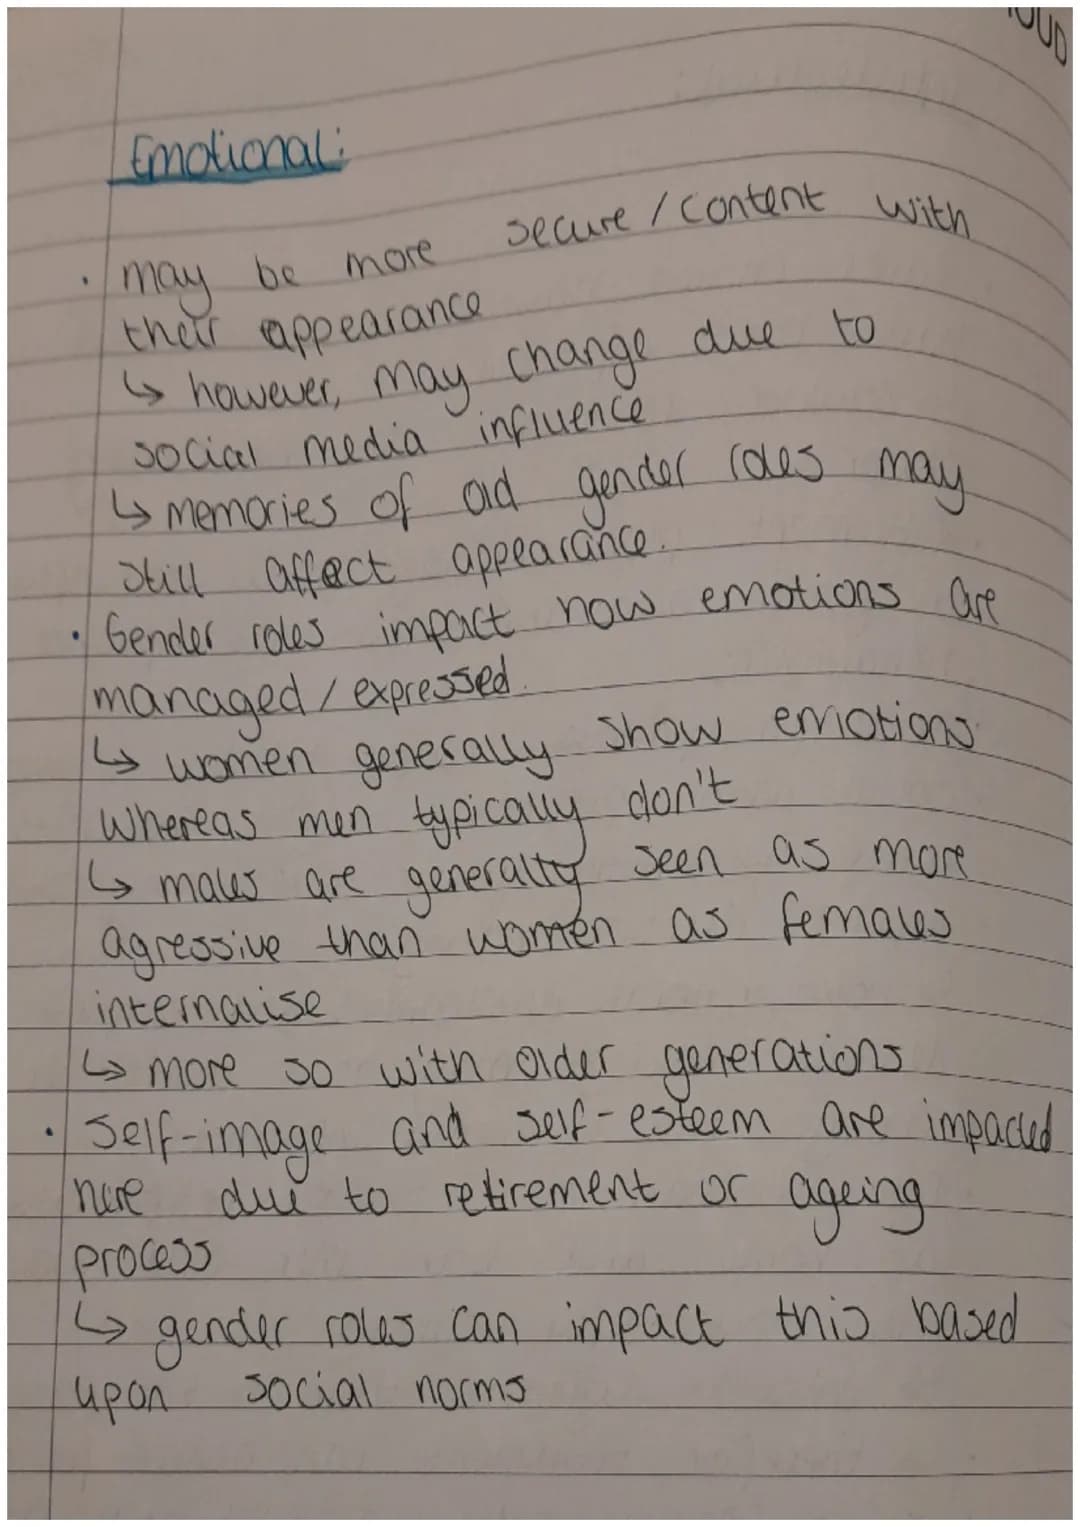 Emotional:
• may be more secure / content with
their appearance
↳ however, may change due to
social media influence
↳ memories of old gender roles may
still affect appearance.
• Gender roles impact how emotions are
managed / expressed.
↳ women generally show emotions
whereas men typically don't
↳ males are generally seen as more
agressive than women as females
internalise
↳ more so with older generations
• Self-image and self-esteem are impacted
here due to retirement or ageing
process
↳ gender roles can impact this based
upon social norms